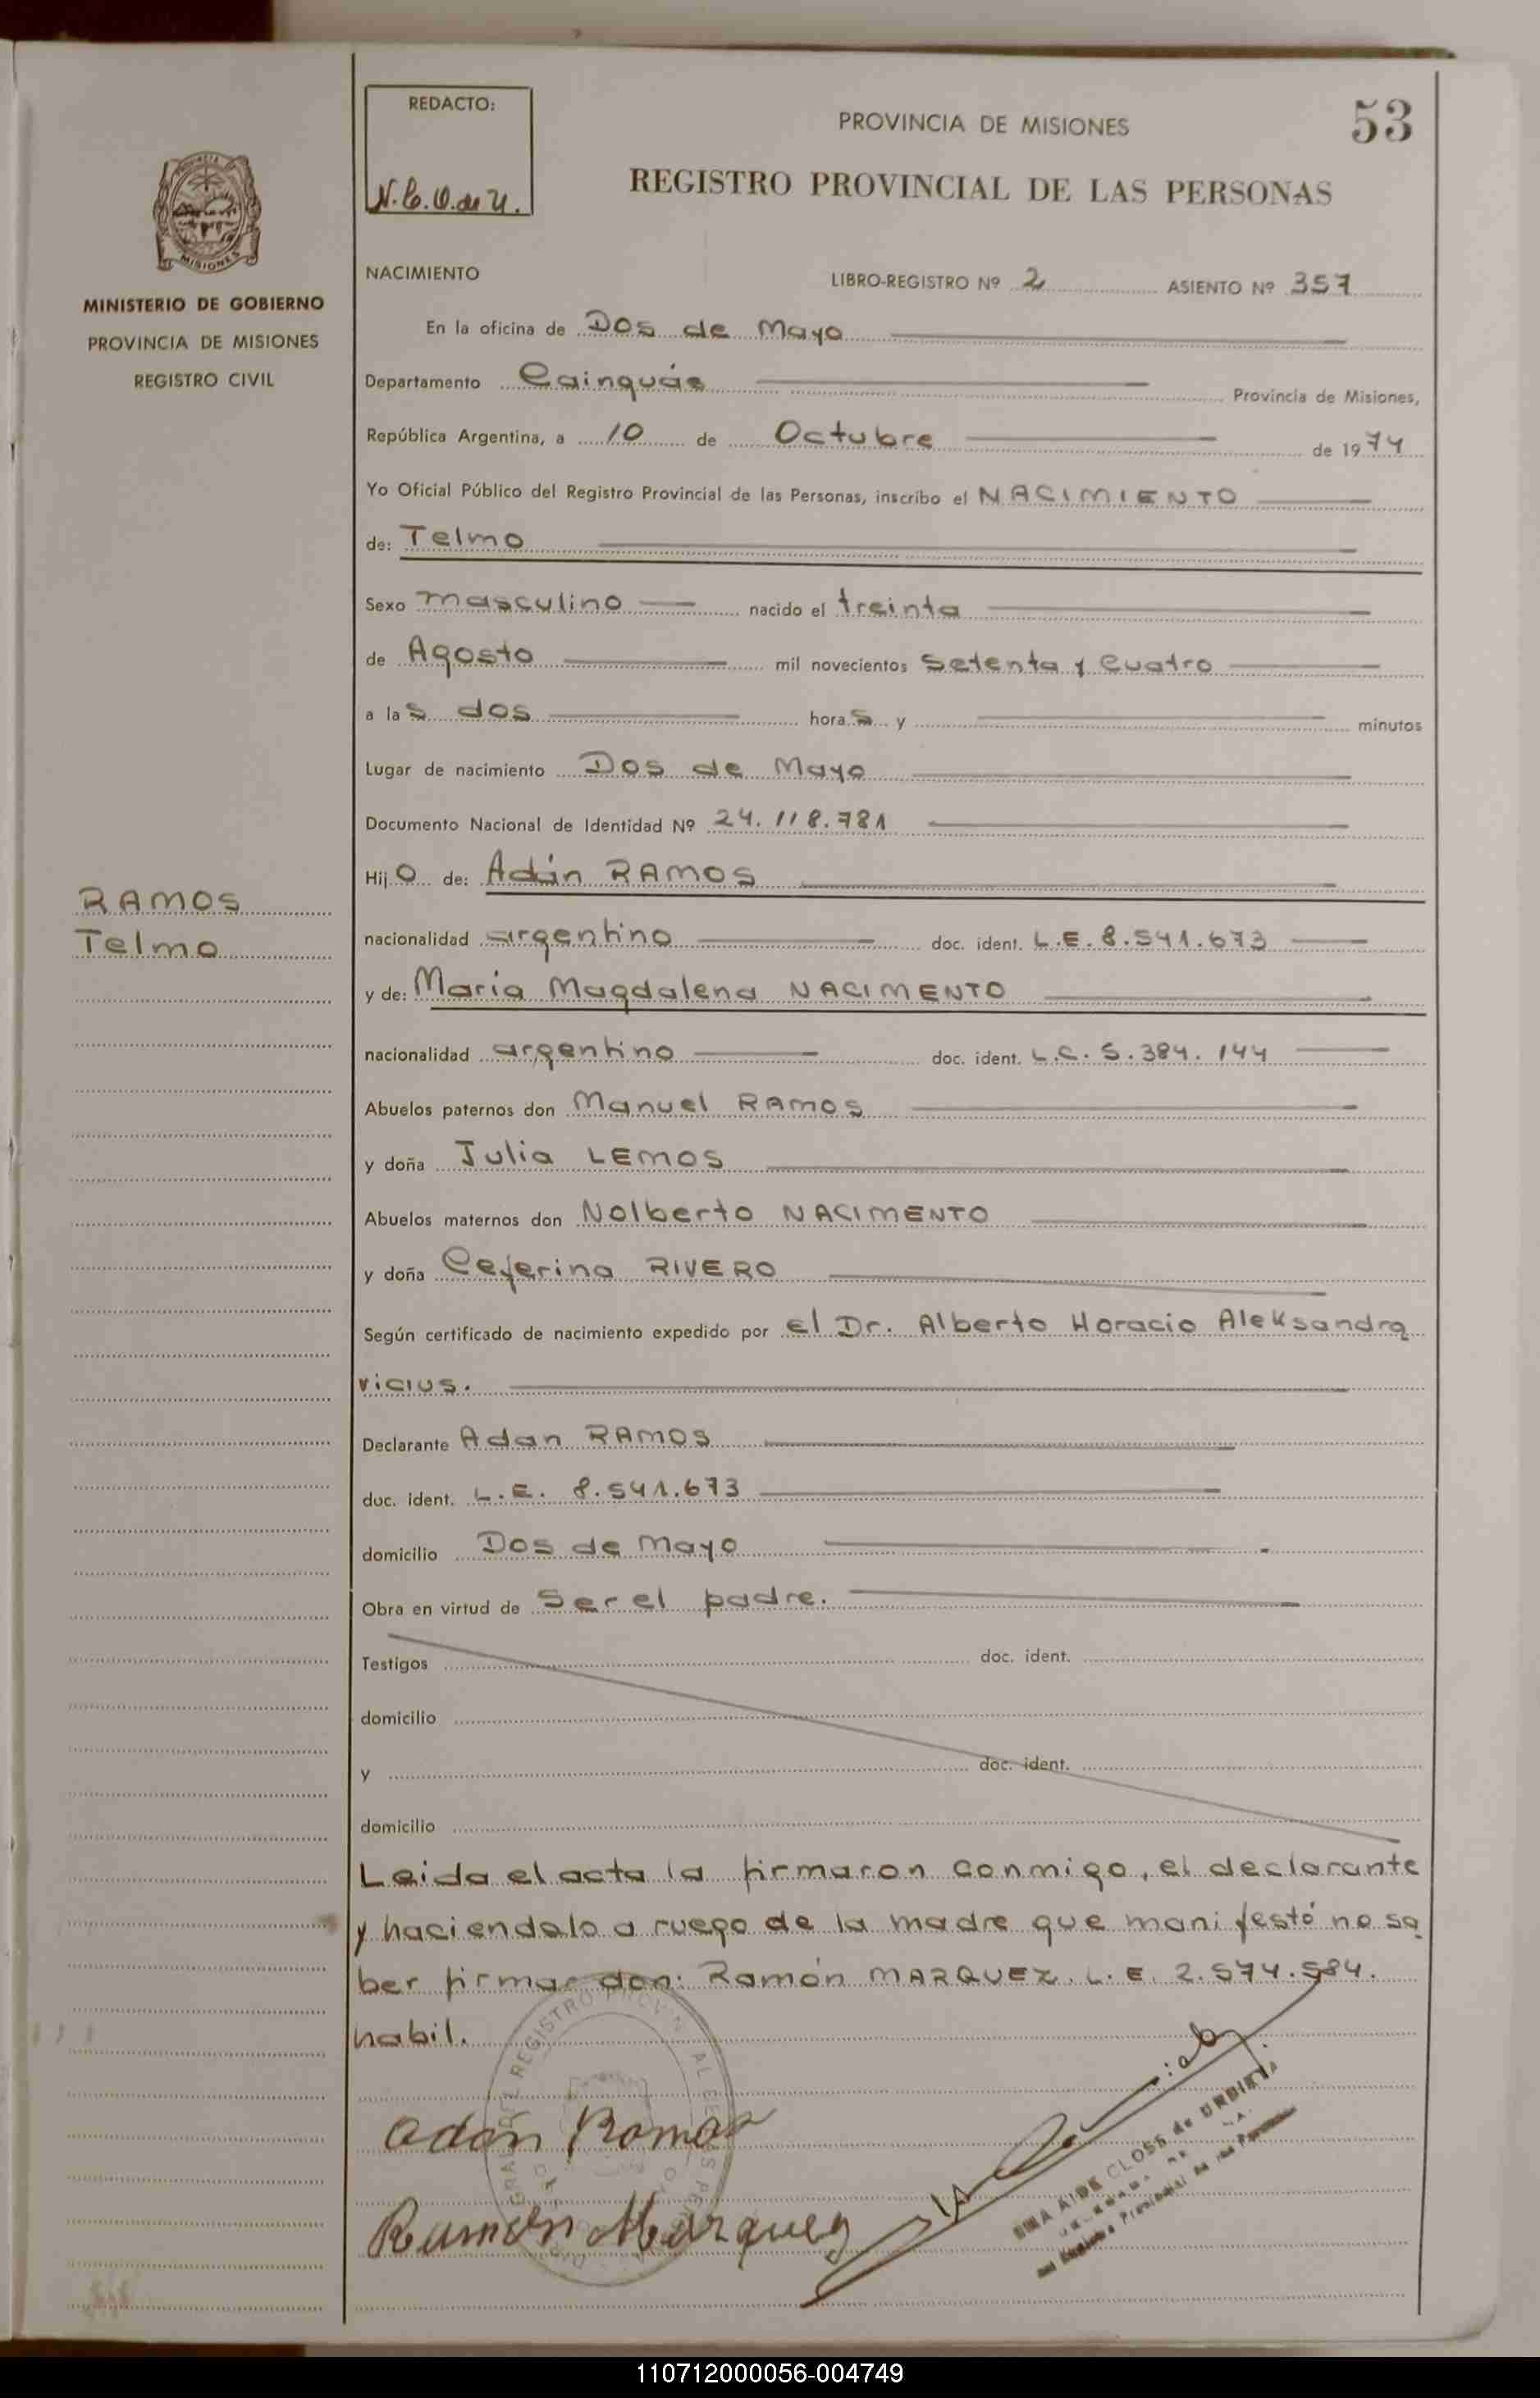 53
REDACTO:
N.C.O. de U.
PROVINCIA DE MISIONES
REGISTRO PROVINCIAL DE LAS PERSONAS
PROVINCIA
MISIONES
MINISTERIO DE GOBIERNO
PROVINCIA DE MISIONES
REGISTRO CIVIL
RAMOS
Telmo
NACIMIENTO LIBRO-REGISTRO Nº 2 ASIENTO Nº 357
En la oficina de Dos de Mayo
Departamento Cainguás Provincia de Misiones,
República Argentina, a 10 de Octubre de 1974
Yo Oficial Público del Registro Provincial de las Personas, inscribo el NACIMIENTO
de: Telmo
Sexo masculino nacido el treinta
de Agosto mil novecientos Setenta y Cuatro
a las dos horas y minutos
Lugar de nacimiento Dos de Mayo
Documento Nacional de Identidad Nº 24.118.781
Hijo de: Adán RAMOS
nacionalidad argentino doc. ident. L.E. 8.541.673
y de: Maria Magdalena NACIMENTO
nacionalidad argentino doc. ident. L.C. 5.384.144
Abuelos paternos don Manuel RAMOS
y doña Julia LEMOS
Abuelos maternos don Nolberto NACIMENTO
y doña Ceferina RIVERO
Según certificado de nacimiento expedido por el Dr. Alberto Horacio Aleksandra
vicius.
Declarante Adan RAMOS
doc. ident. L.E. 8.541.673
domicilio Dos de Mayo
Obra en virtud de Ser el padre.
Testigos doc. ident.
domicilio
y doc. ident.
domicilio
Leida el acta la firmaron conmigo, el declarante
y haciendolo a ruego de la madre que manifestó no sa
ber firmar don: Ramón MARQUEZ. L.E. 2.574.584.
habil.
Adán Ramos
Ramón Marquez
AIDE CLOSS de URDIETA
110712000056-004749